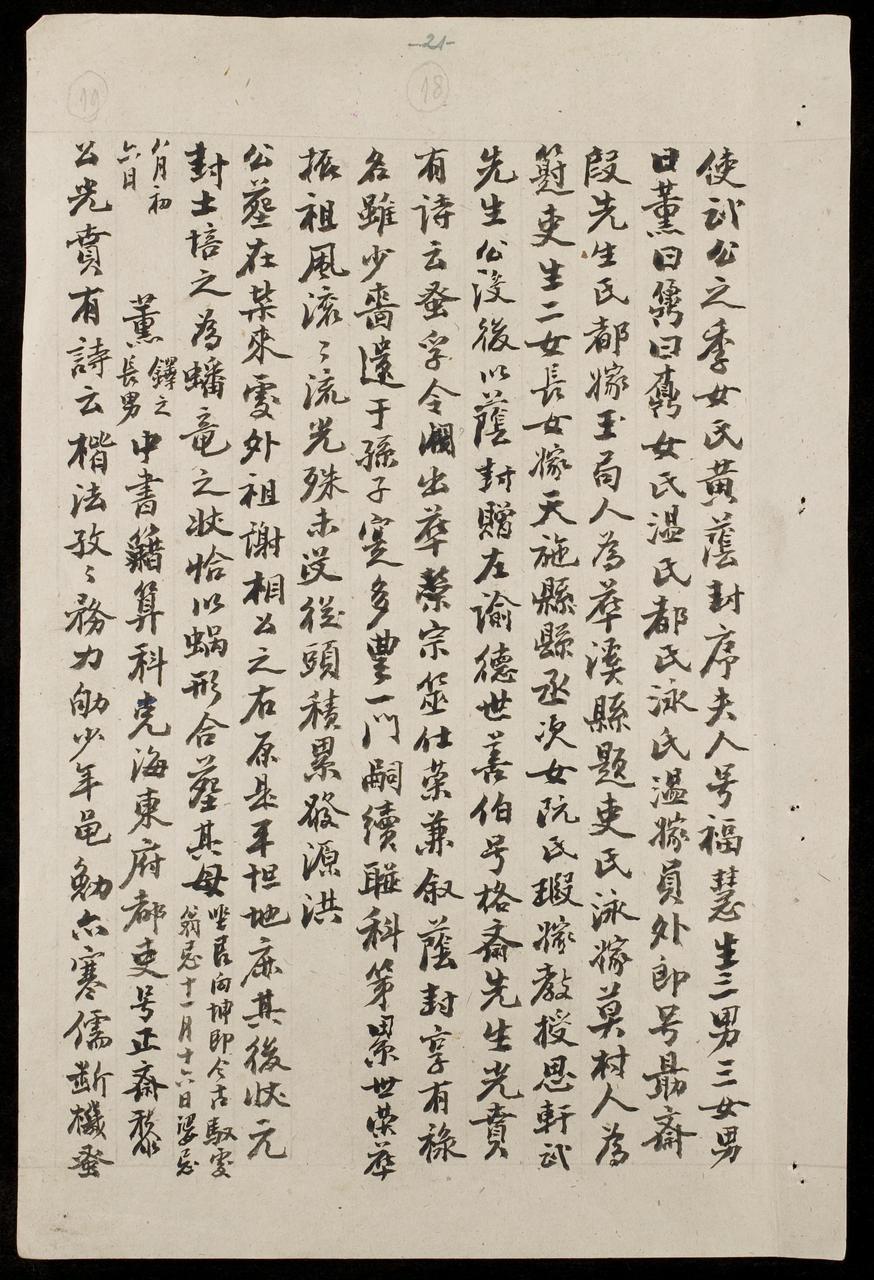 -21-
18
19
使武公之季女氏黄蔭封序夫人号福慧生三男三女男
曰薰曰儁曰女氏温氏都氏泳氏温嫁員外郎号勗斎
段先生氏都嫁玉局人為華溪縣題吏氏泳嫁莫村人為
簿吏生二女長女嫁天施縣縣丞次女阮氏瑕嫁教授思軒武
先生公没後以蔭封贈左諭德世善伯号格斎先生光賁
有詩云蚤孚令聞出華榮宗筮仕荣兼叙蔭封享有祿
名雖少嗇遺于孫子寔多豊一門嗣續聯科第累世荣華
振祖風滚〻流光殊未艾從頭積累發源洪
公墓在某來處外祖謝相公之右原是平坦地庶其後狀元
封土培之為蟠竜之狀恰以蝸形合墓其母坐艮向坤即今古馭處
翁忌十一月十六日婆忌
八月初
六日
薰鐸之
長男中書籍算科克海東府都吏号正斎
公光賁有詩云楷法孜〻務力劬少年黾勉亦寒儒断機蚤